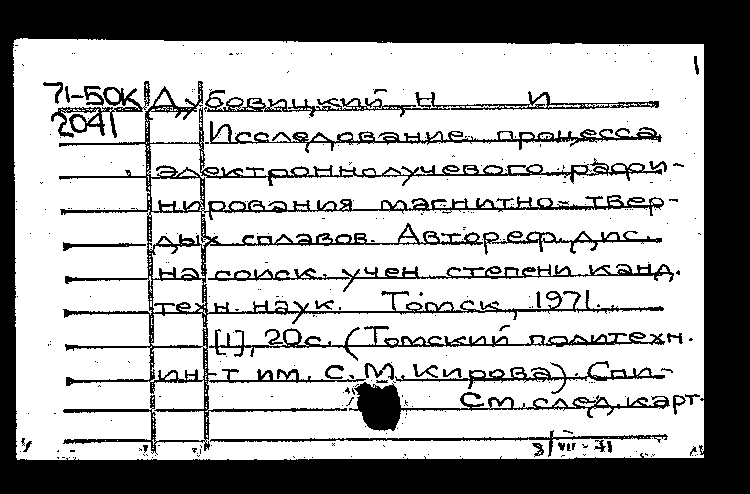 1
71-50К Дубовицкий, Н И
2041 Исследование процесса
электроннолучевого рафи-
нирования магнитно-твер-
дых сплавов. Автореф. дис.
на соиск. учен степени канд.
техн. наук. Томск, 1971.
[1], 20с. (Томский политехн.
ин-т им. С. М. Кирова). Спи-
См. след. карт.
8/VII-71